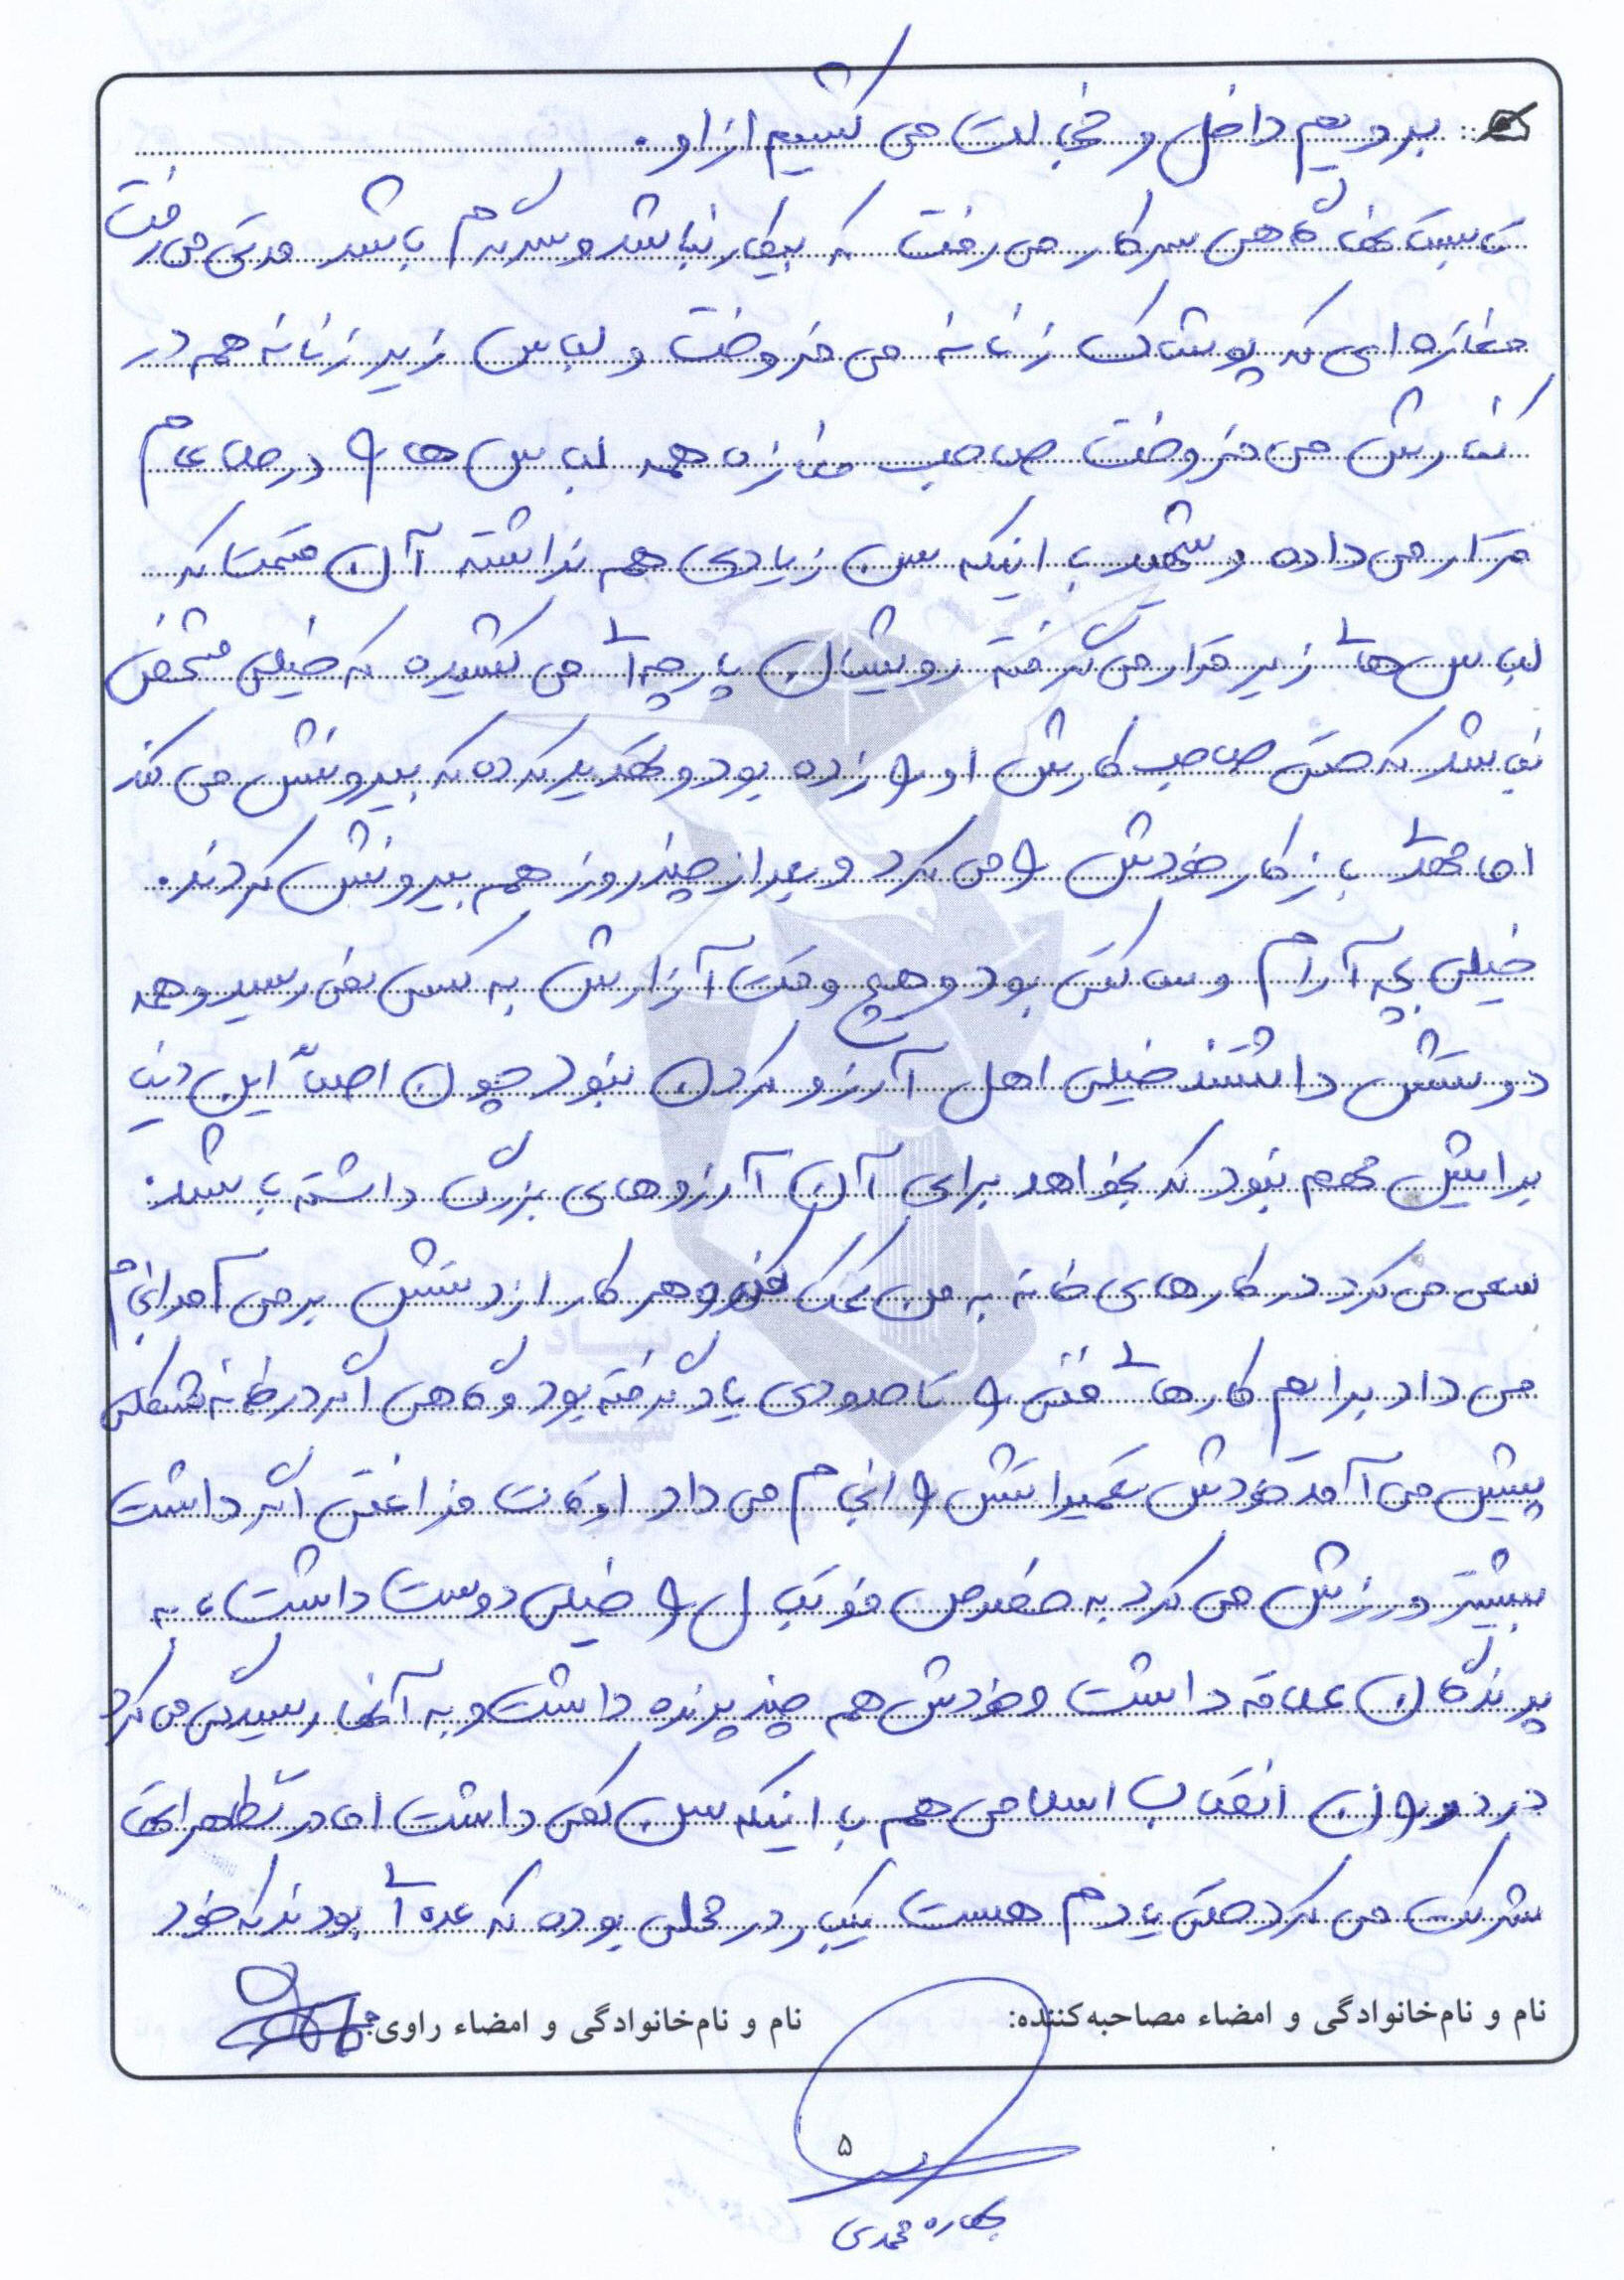 برویم داخل و خجالت می کشیم از او.
تابستانها گاهی سرکار می رفت که بیکار نباشد و سرگرم باشد مدتی می رفت
مغازه ای که پوشاک زنانه می فروخت و لباس زیر زنانه هم در
کنارش می فروخت صاحب مغازه همه لباس ها را در ملاعام
قرار می داده و شهید با اینکه سن زیادی هم نداشته آن قسمتا که
لباس های زیر قرار می گرفته رویشان پارچه ای می کشیده که خیلی مشخص
نباشد که حتی صاحب کارش او را زده بود و تهدید کرده که بیرونش می کند
اما مهدی باز کار خودش را می کرد و بعد از چند روز هم بیرونش کردند.
خیلی بچه آرام و ساکتی بود و هیچ وقت آزارش به کسی نمی رسید و همه
دوستش داشتند خیلی اهل آرزو کردن نبود چون اصلاً این دنیا
برایش مهم نبود که بخواهد برای آن آرزوهای بزرگ داشته باشد.
سعی می کرد در کارهای خانه به من کمک کند و هر کار از دستش بر می آمد انجام
می داد برایم کارهای فنی را تا حدودی یاد گرفته بود و گاهی اگر در خانه مشکلی
پیش می آمد خودش تعمیراتش را انجام می داد اوقات فراغتی اگر داشت
بیشتر ورزش می کرد به خصوص فوتبال را خیلی دوست داشت، به
پرندگان علاقه داشت و خودش هم چند پرنده داشت و به آنها رسیدگی می کرد
در دوران انقلاب اسلامی هم با اینکه سن کمی داشت اما در تظاهراتها
شرکت می کرد حتی یادم هست یکبار در محلی بوده که عده ای بودند که خود
نام و نام‌خانوادگی و امضاء مصاحبه‌کننده:
نام و نام‌خانوادگی و امضاء راوی:
۵
بهاره محمدی